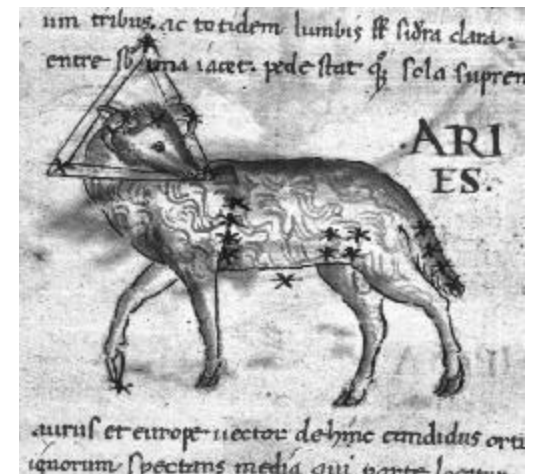 um tribus. ac totidem lumbis sidra clara.
entre una iacet. pede stat sola suprem
.ARI
ES.
aurus et europe uector dehinc candidus orti
ignorum spectans media qui parte